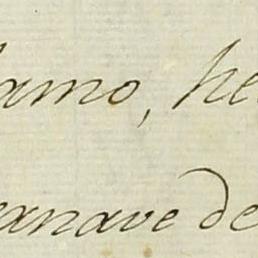 lamo, he
anave de